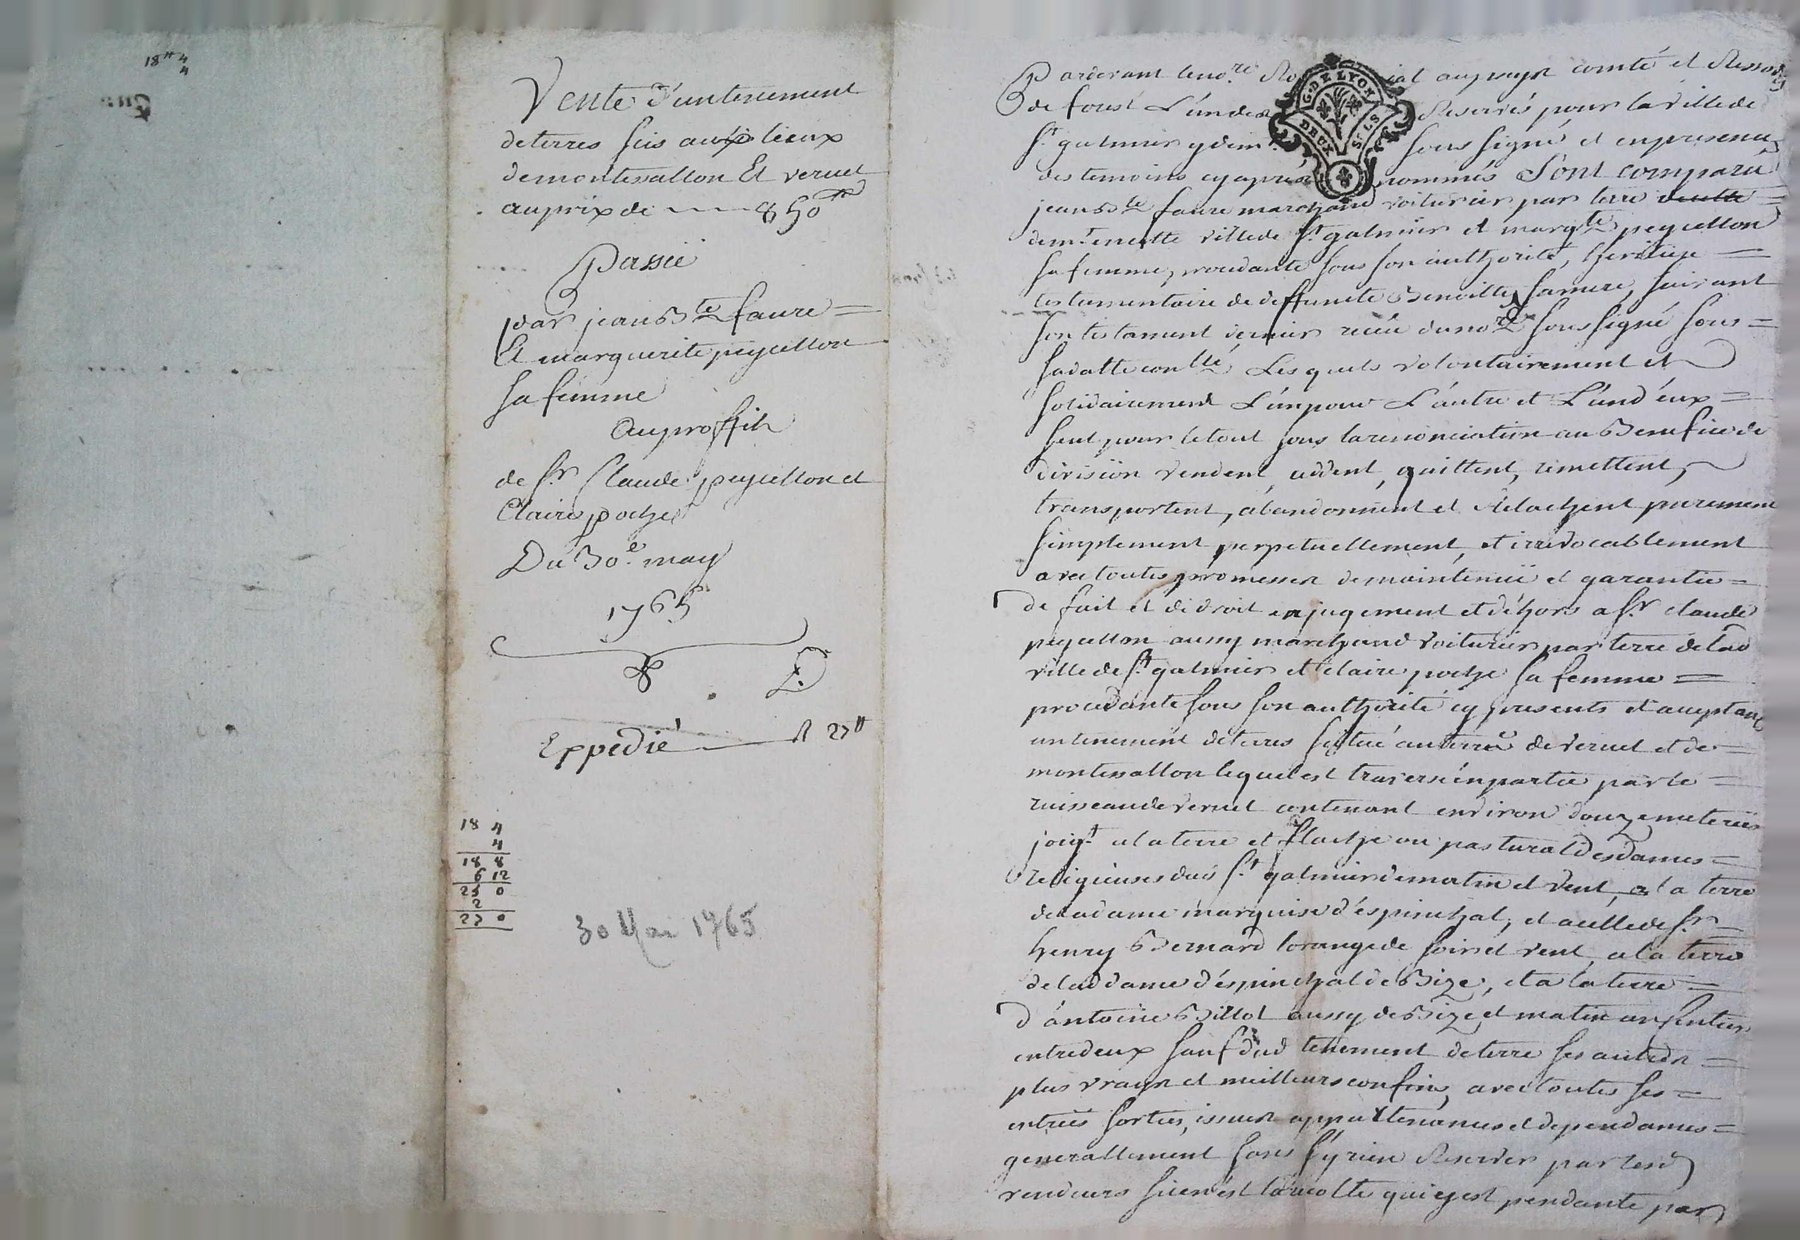 18₶ 4
4
Vente d'un tenement
de terres sis aux lieux
de montesallon Et vernet
au prix de 850₶
Passée
par jean Bte faure
Et marguerite peycellon
sa femme
au proffit
de Sr Claude peycellon et
Claire poche
Du 30e may
1765
Expedié R 27₶
18 4
4
18 8
6 12
25 0
2
27 0
30 Mai 1765
G. DE LYON
DEUX Sls
Pardevant le nore Ro ial au pays comté et Ressort
de forest L'un des Reservés pour la ville de
St galmier y dem sous signé et en presence
des temoins cy apres nommés Sont comparu
jean Bte faure marchand voiturier par terre
demt en cette ville de St galmier et margte peycellon
sa femme, procedante sous son authorité, heritiere
testamentaire de deffuncte Benoitte sa mere, suivant
son testament dernier recu du nore soussigné sous
sa datte conllé Lesquels volontairement et
solidairement L'un pour L'autre et L'un d'eux
seul pour le tout sous la renonciation au Benefice de
division vendent, cedent, quittent, remettent,
transportent, abandonnent et Relachent purement
simplement perpetuellement, et irrevocablement
avec toutes promesses de maintenüe et garantie
de fait et de droit en jugement et déhors a Sr claude
peycellon aussy marchand voiturier par terre de lad
ville de St galmier et claire poche sa femme
procedante sous son authorité cy presents et acceptant
un tenement de terres scitué au terroir de vernet et de
montesallon lequel est traversé en partie par le
ruisseau de vernet contenant environ douze meterées
joigt a la terre et Plache ou pastural des Dames
religieuses dud St galmier de matin et vent, a la terre
de la dame marquise d'espinchal, et a celle de Sr
henry Bernard lorange de soir et vent, a la terre
de lad dame d'espinchal de Bize, et a la terre
d'antoine Billot aussy de Bize et matin un sentier
entredeux sauf dud tenement de terre ses autres
plus vrays et meilleurs confins, avec toutes ses
entrées sorties, issues appartenances et dependances
generallement sans s'y rien Reserver par lesd
vendeurs si ce n'est la recolte qui y est pendante par